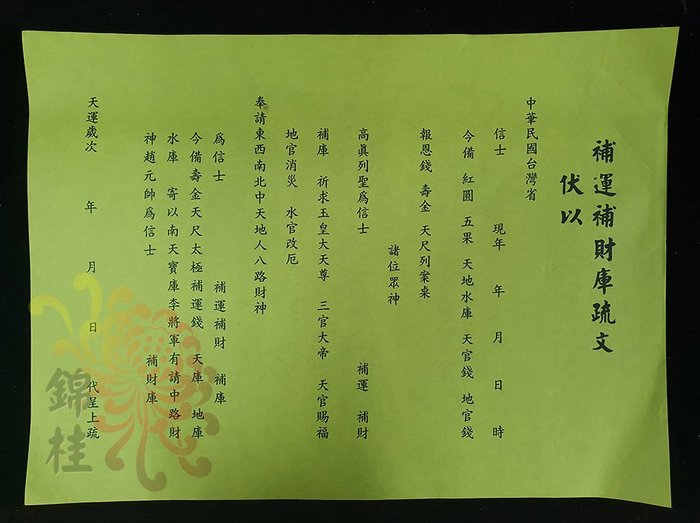 補運補財庫疏文
伏以
中華民國台灣省
信士 現年 年 月 日 時
今備 紅圓 五果 天地水庫 天官錢 地官錢
報恩錢 壽金 天尺列案桌
諸位眾神
高眞列聖爲信士 補運 補財
補庫 祈求玉皇大天尊 三官大帝 天官賜福
地官消災 水官改厄
奉請東西南北中天地人八路財神
爲信士 補運補財 補庫
今備壽金天尺太極補運錢 天庫 地庫
水庫 寄以南天寶庫李將軍有請中路財
神趙元帥爲信士 補財庫
天運歲次 年 月 日 代呈上疏
錦桂